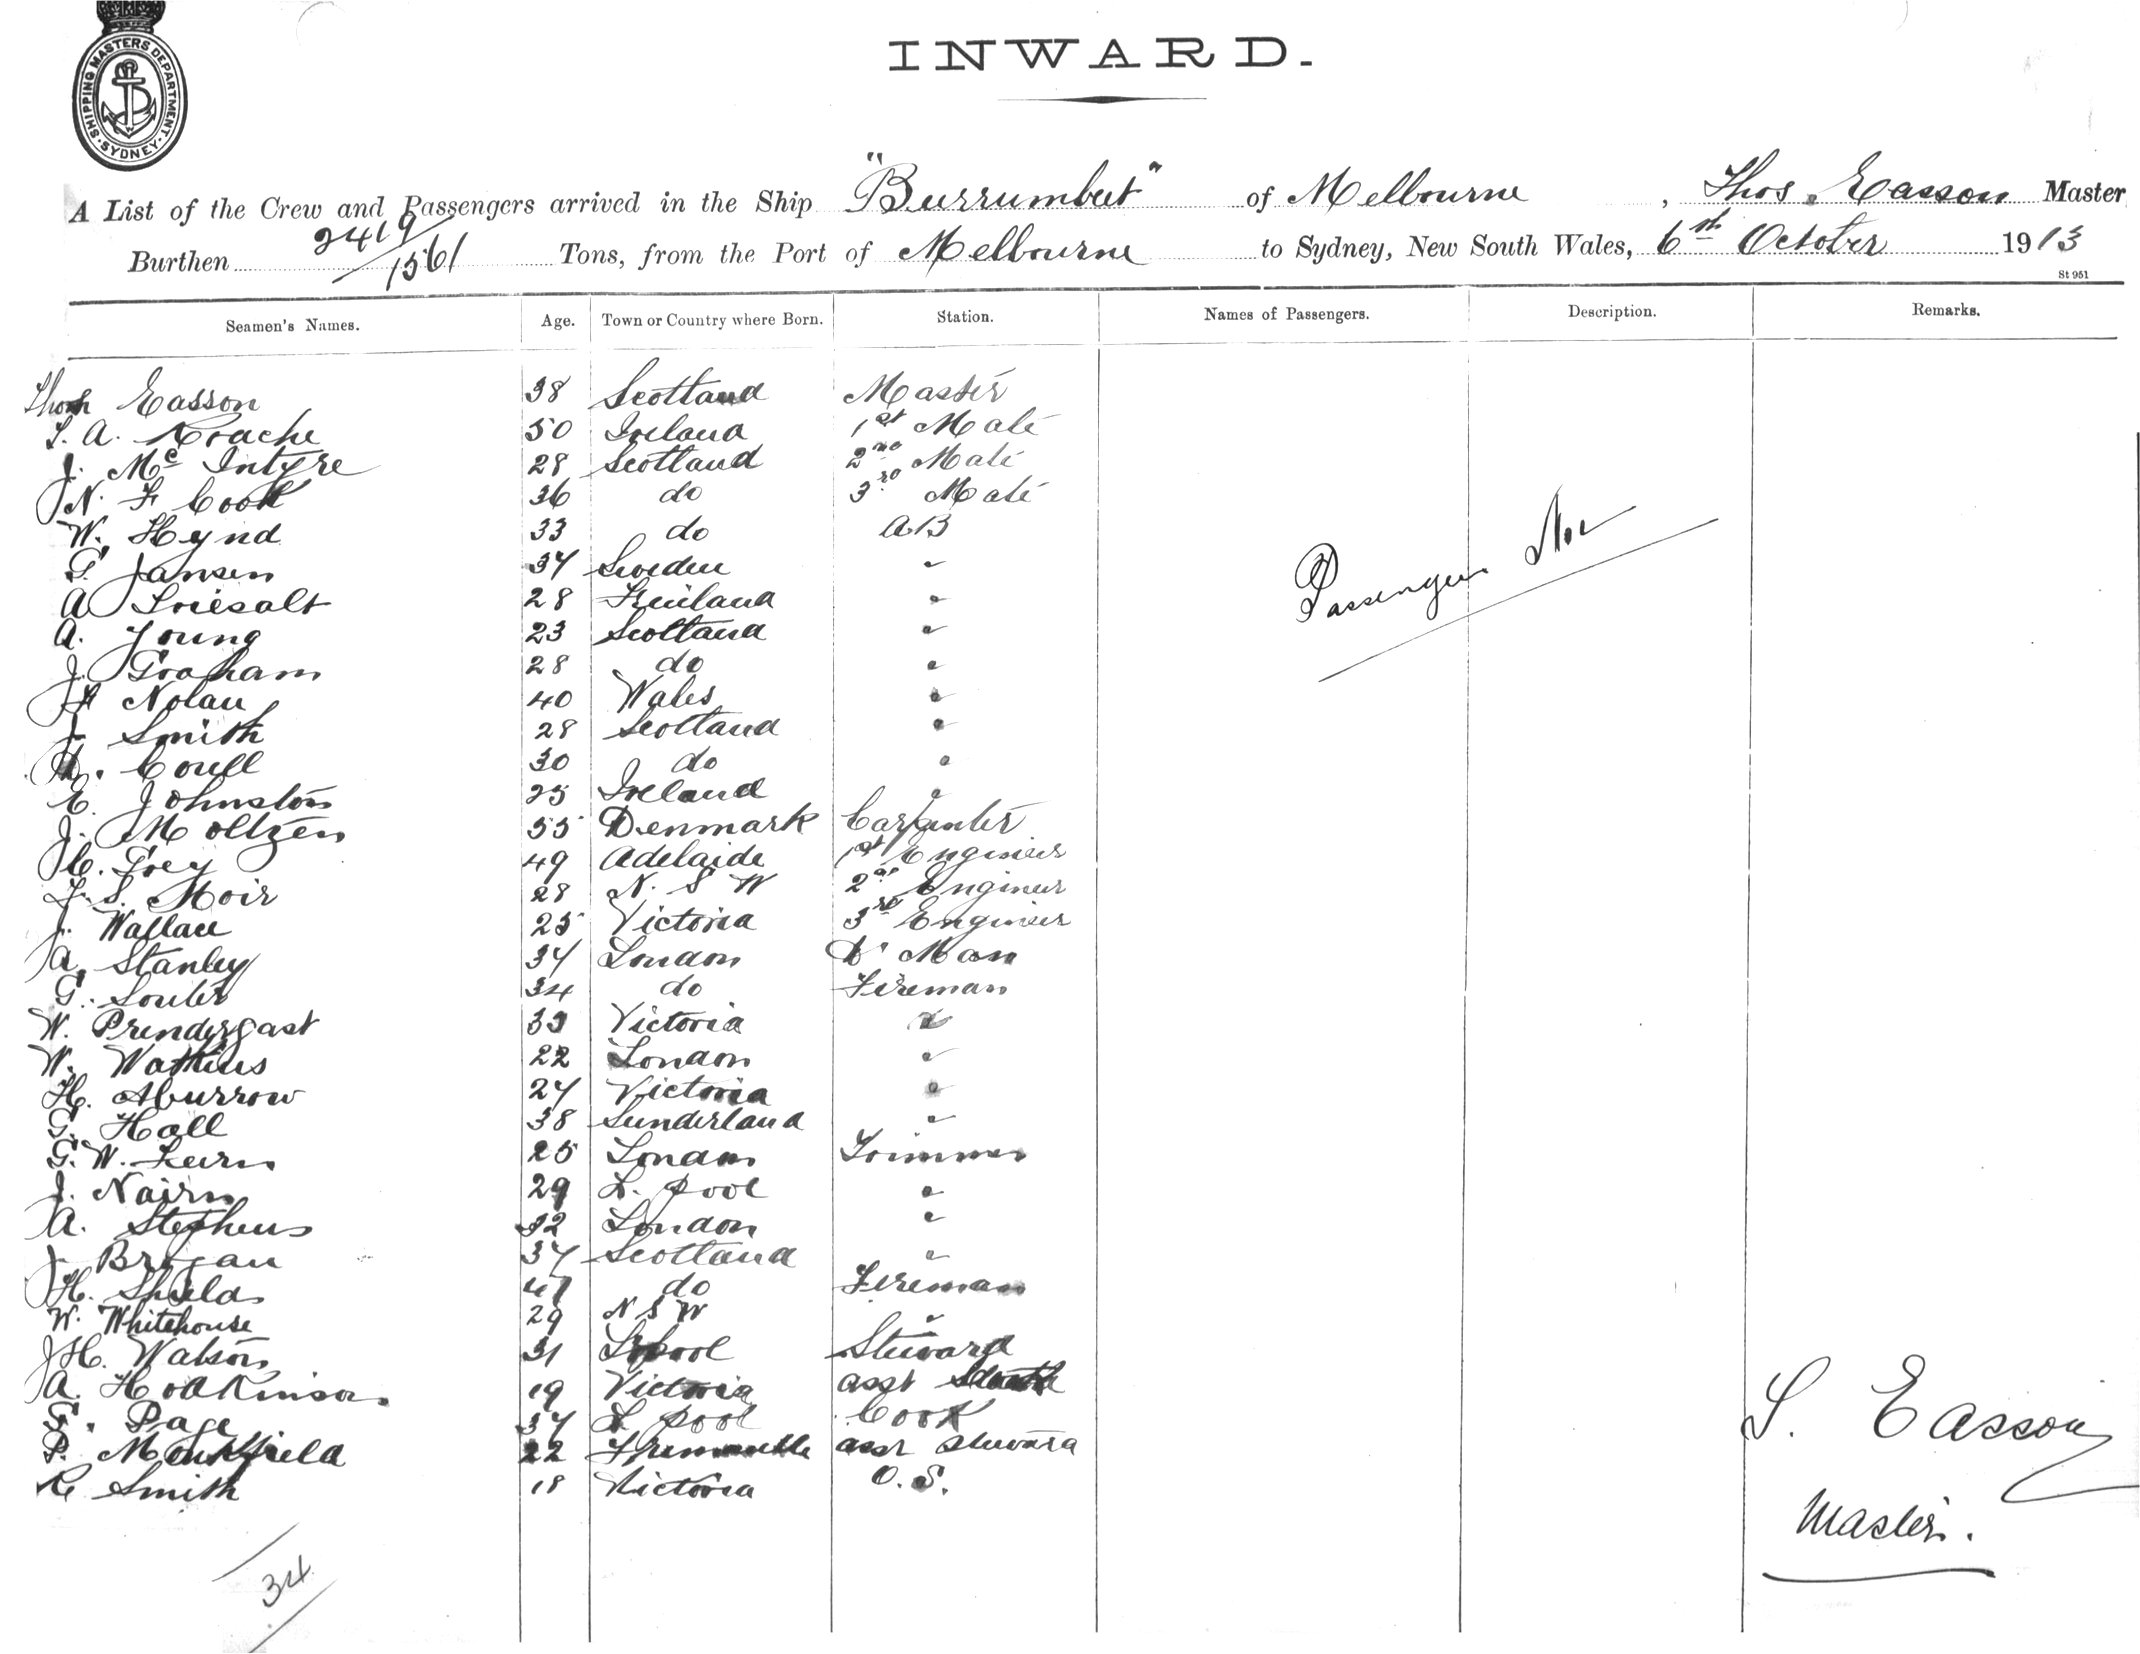 SHIPPING MASTERS DEPARTMENT
SYDNEY
INWARD.
A List of the Crew and Passengers arrived in the Ship "Burrumbeet" of Melbourne, Thos. Easson Master
Burthen 2419/1561 Tons, from the Port of Melbourne to Sydney, New South Wales, 6th October 1913
St 951
Seamen's Names. Age. Town or Country where Born. Station. Names of Passengers. Description. Remarks.
Thos Easson 38 Scotland Master
T. A. Roache 50 Ireland 1st Mate
J. Mc Intyre 28 Scotland 2nd Mate
N. F Cook 36 do 3rd Mate
W. Hynd 33 do A.B
G. Jansen 34 Sweden "
A 28 Finland "
A. Young 23 Scotland "
J. Graham 28 do "
Nolan 40 Wales "
J Smith 28 Scotland "
Coull 30 do "
E. Johnston 25 Ireland "
J. Moltzen 55 Denmark Carpenter
C. Grey 49 Adelaide 1st Engineer
J. S. Moir 28 N. S W 2nd Engineer
J. Wallace 25 Victoria 3rd Engineer
A. Stanley 34 London D' Man
G. Souter 34 do Fireman
W. Prendergast 33 Victoria "
W. Watkins 22 London "
H. Aburrow 24 Victoria "
G. Hall 38 Sunderland "
G. W. 25 London Trimmer
J. Nairn 29 L. pool "
A. Stephens 32 London "
J Brogan 34 Scotland "
H. Shields 47 do Fireman
W. Whitehouse 29 N S W "
J H. Watson 31 L pool Steward
A. Hodkinson 19 Victoria asst
G. Page 34 L pool Cook
P. Monkfield 22 Fremantle asst Steward
R Smith 18 Victoria O. S.
Passengers Nil
T. Easson
Master.
34